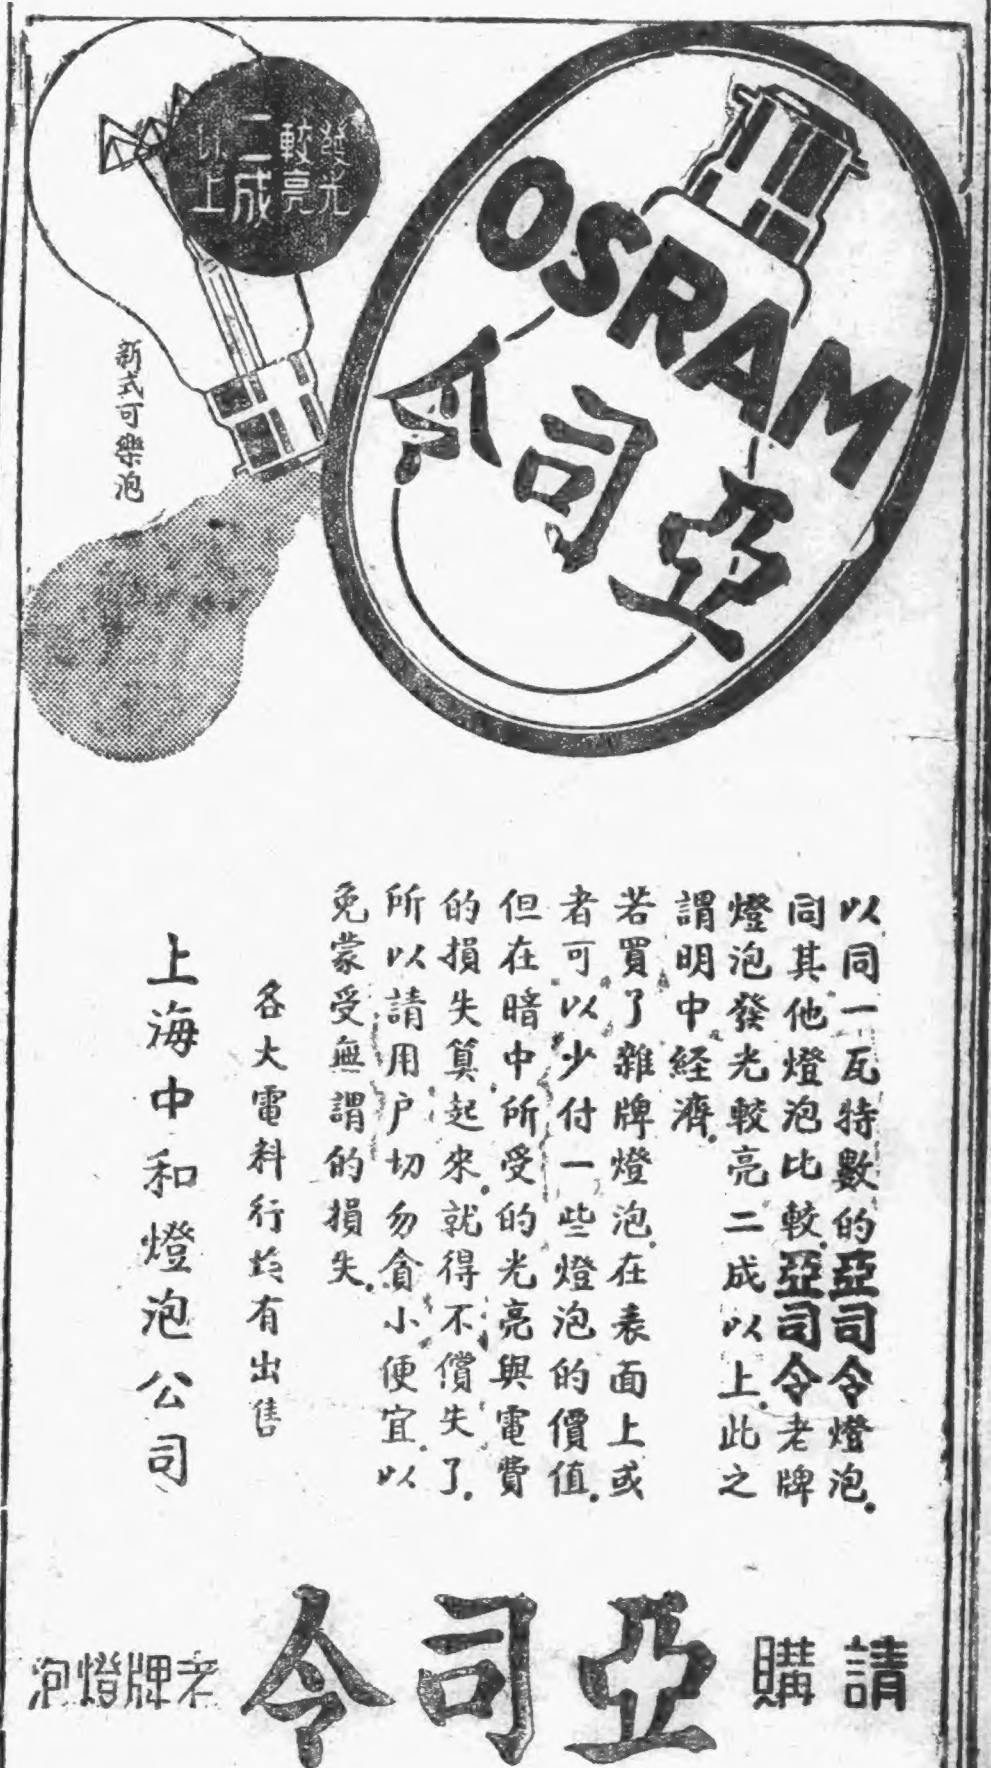 發光
較亮
二成
以上
新式可樂泡
OSRAM
亞司令
以同一瓦特數的亞司令燈泡。
同其他燈泡比較。亞司令老牌
燈泡發光較亮二成以上。此之
謂明中経濟。
若買了雜牌燈泡。在表面上或
者可以少付一些燈泡的價值。
但在暗中所受的光亮與電費
的損失算起來。就得不償失了。
所以請用户切勿貪小便宜。以
免蒙受無謂的損失。
各大電料行均有出售
上海中和燈泡公司
請購
亞司令
老牌燈泡